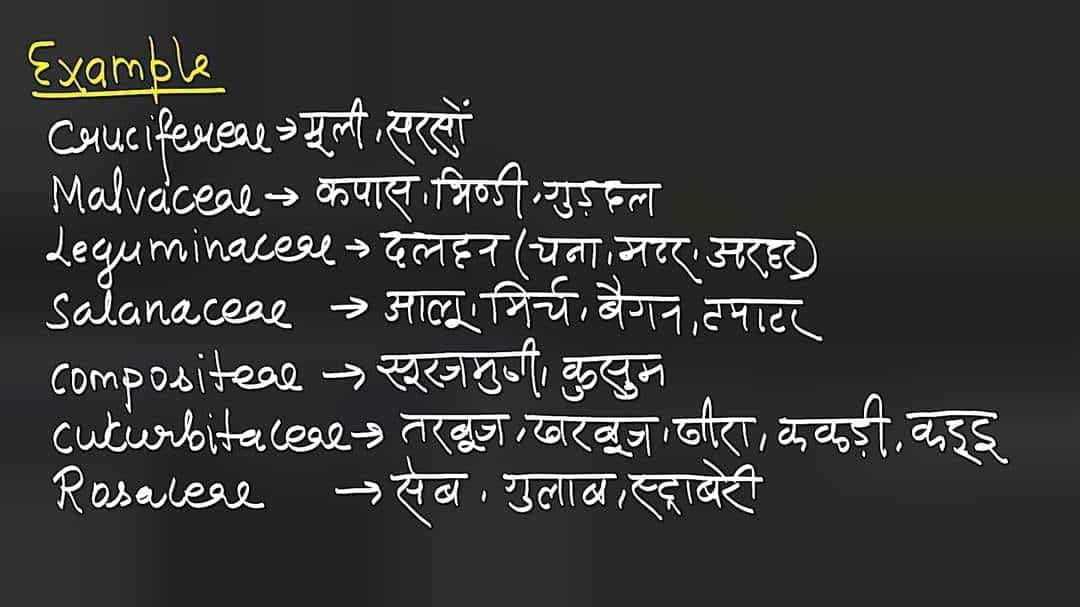 Example
Crucifereae → मूली, सरसों
Malvaceae → कपास, भिण्डी, गुड़हल
Leguminaceae → दलहन (चना, मटर, अरहर)
Salanaceae → आलू, मिर्च, बैगन, टमाटर
compositeae → सूरजमुखी, कुसुम
cukurbitaceae → तरबूज, खरबूज, खीरा, ककड़ी, कद्दू
Rosaceae → सेब, गुलाब, स्ट्राबेरी